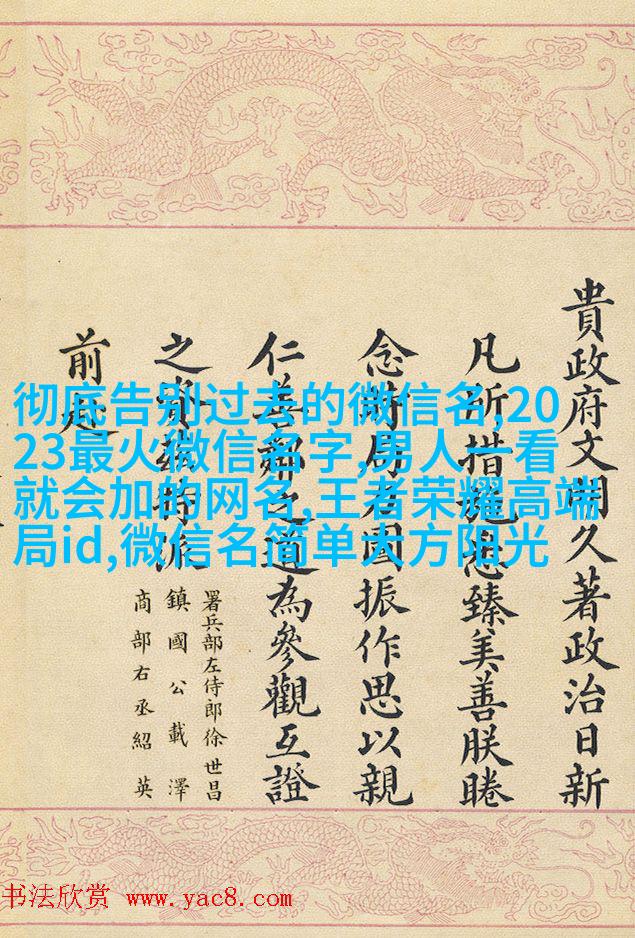 彻底告别过去的微信名,20
23最火微信名字,男人一看
就会加的网名,王者荣耀高端
局id,微信名简单大方阳光
貴政府文久著政治日新
凡所措施悉臻美善朕睠
念時局國振作思以親
仁善鄰之道為參觀互證
之資特派
署兵部左侍郎徐世昌
鎮國公載澤
商部右丞紹英
前赴
书法欣赏 www.yac8.com